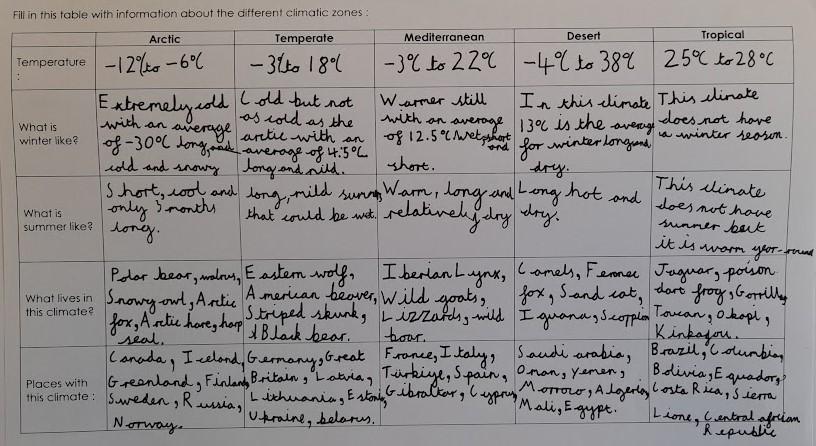 Fill in this table with information about the different climatic zones :
Arctic Temperate Mediterranean Desert Tropical
Temperature :
-12℃ to -6℃
-3℃ to 18℃
-3℃ to 22℃
-4℃ to 38℃
25℃ to 28℃
What is
winter like?
Extremely cold
with an average
of -30℃ long, and
cold and snowy
Cold but not
as cold as the
arctic with an
average of 4.5℃
long and mild.
Warmer still
with an average
of 12.5℃ wet, short
and
short.
In this climate
13℃ is the average
for winter long and
dry.
This climate
does not have
a winter season.
What is
summer like?
Short, cool and
only 3 months
long.
long, mild summer
that could be wet.
Warm, long and
relatively dry
Long hot and
dry.
This climate
does not have
summer but
it is warm year-round
What lives in
this climate?
Polar bear, walrus,
Snowy owl, Arctic
fox, Arctic hare, harp
seal.
Eastern wolf,
American beaver,
Striped skunk,
& Black bear.
Iberian Lynx,
Wild goats,
Lizzards, wild
boar.
Camels, Fennec
fox, Sand cat,
Iguana, Scorpion
Jaguar, poison
dart frog, Gorilla,
Toucan, Okapi,
Kinkajou.
Places with
this climate :
Canada, Iceland,
Greanland, Finland
Sweden, Russia,
Norway.
Germany, Great
Britain, Latvia,
Lithuania, Estonia,
Ukraine, belarus.
France, Italy,
Türkiye, Spain,
Gibraltar, Cyprus
Saudi arabia,
Oman, Yemen,
Morroco, Algeria,
Mali, Egypt.
Brazil, Columbia,
Bolivia, Equador,
Costa Rica, Sierra
Lione, Central african
Republic